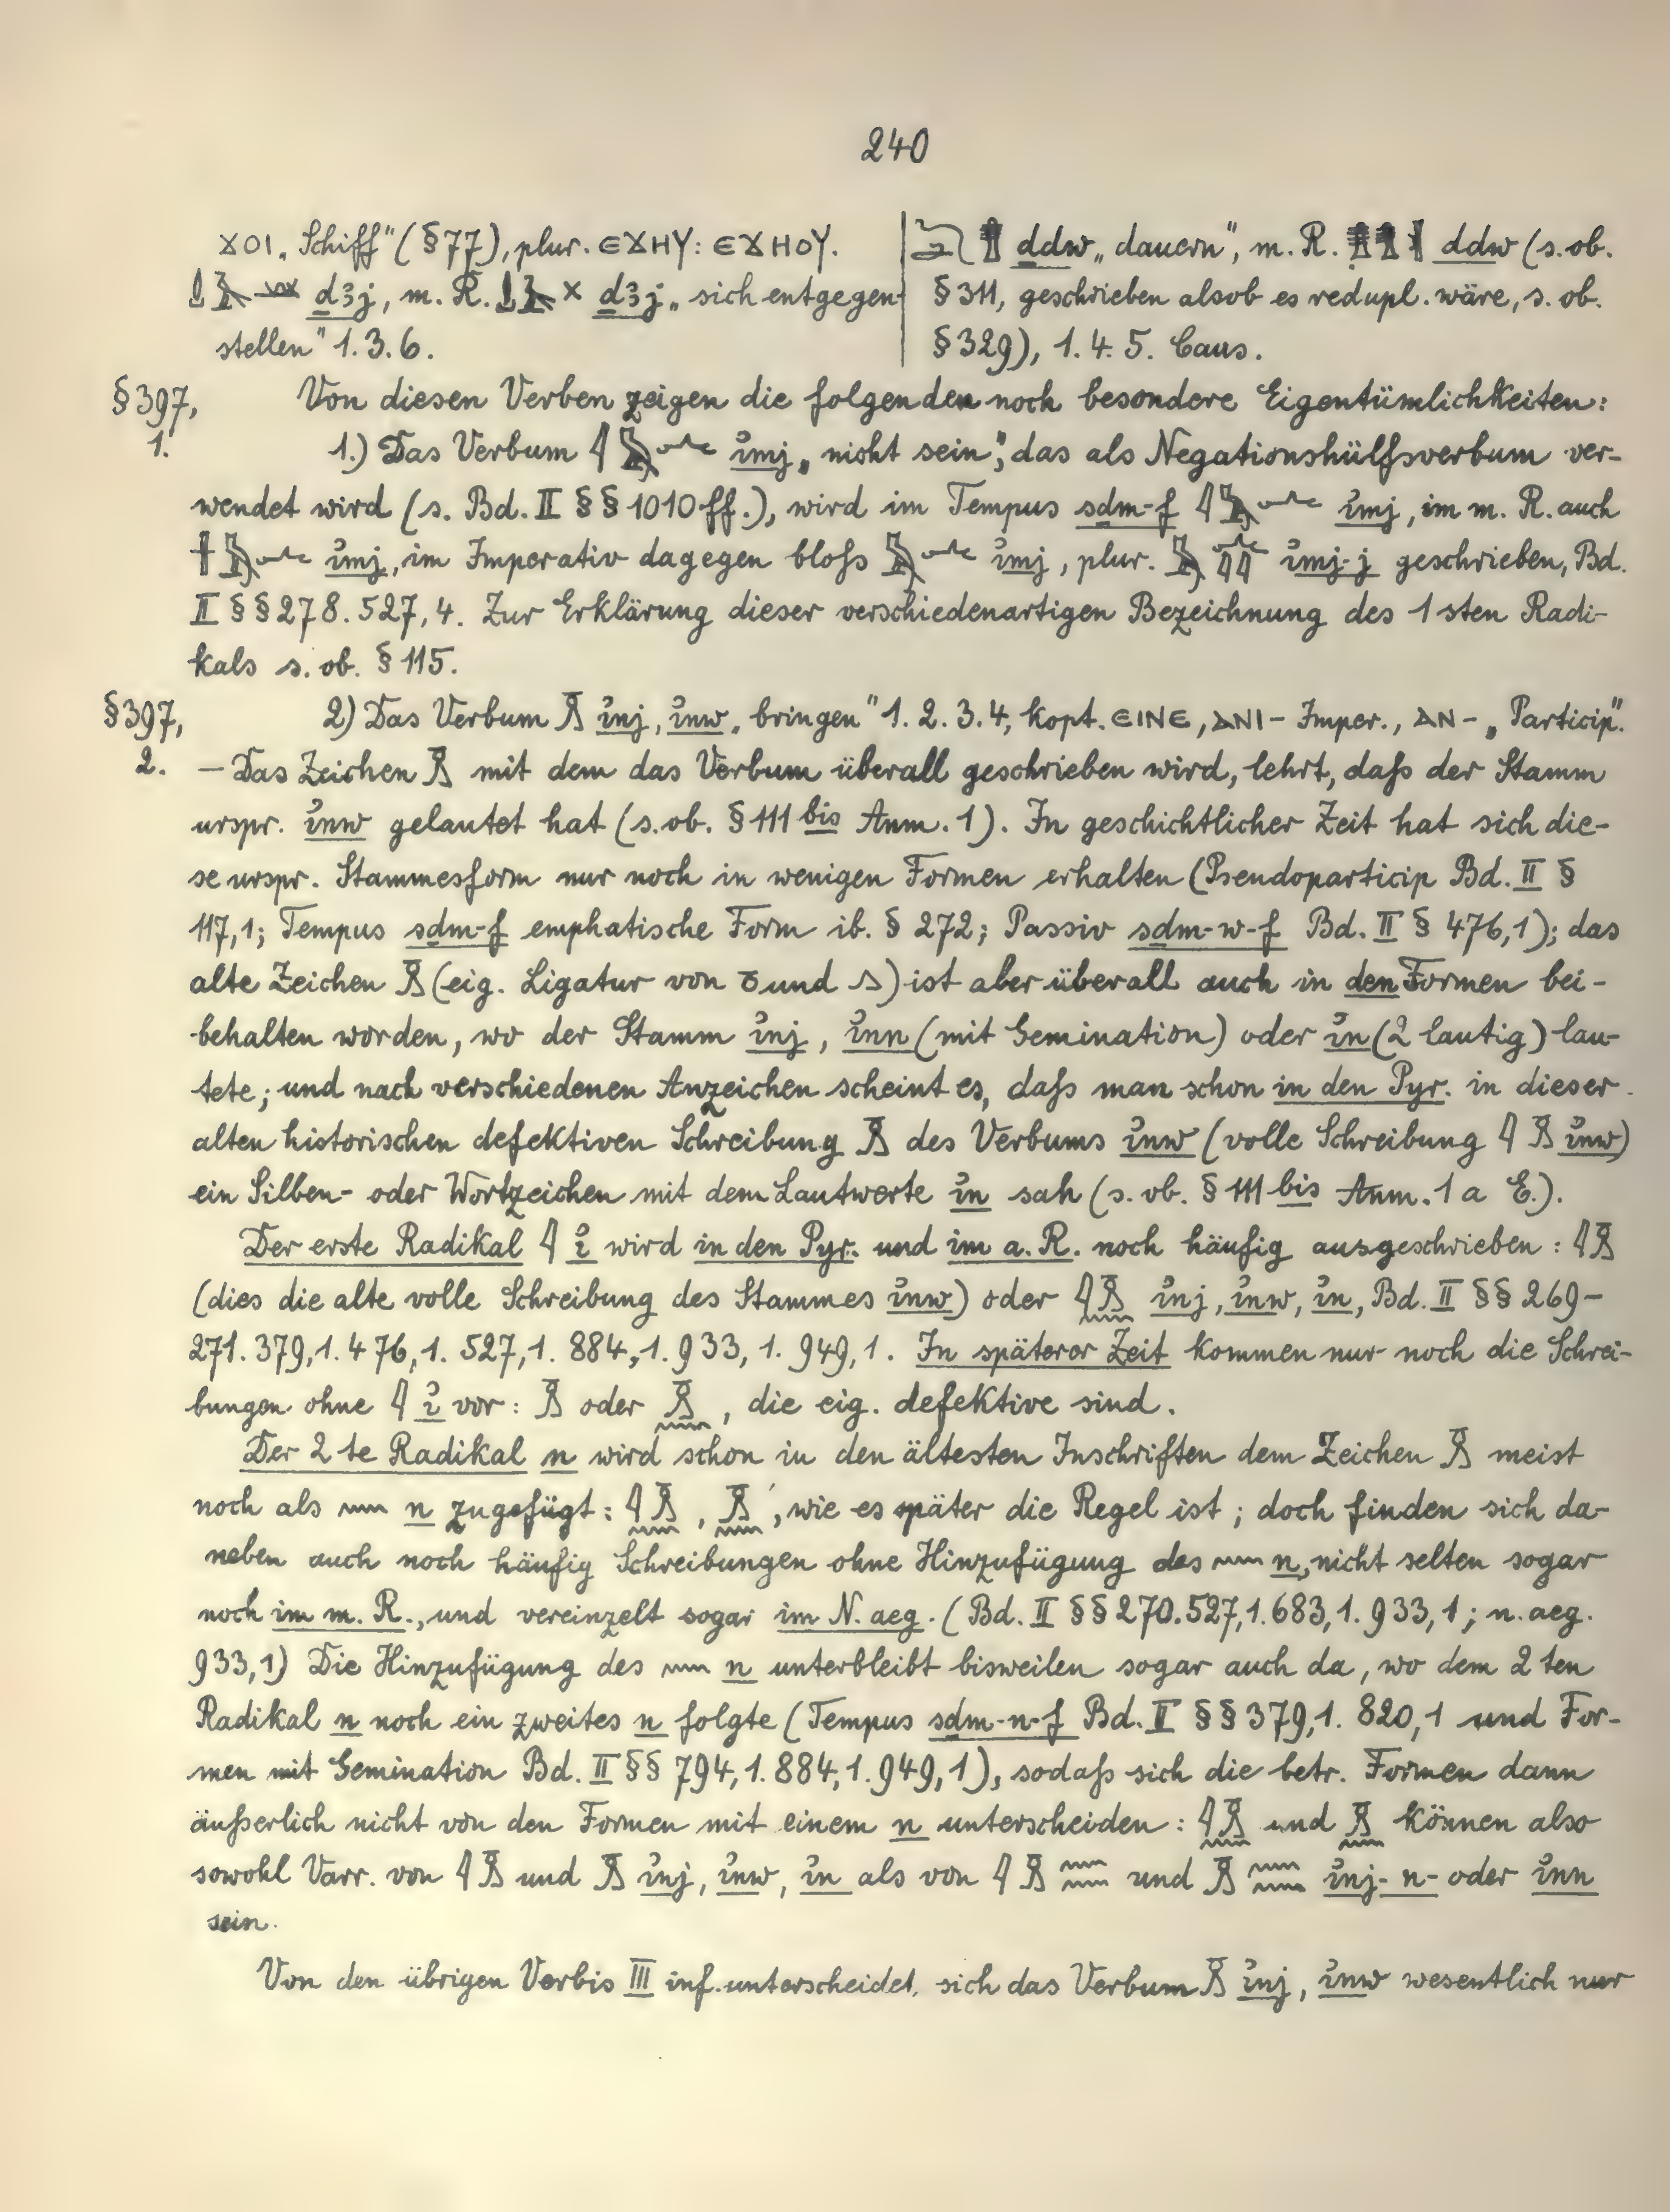 240
ϫⲟⲓ „Schiff“ (§ 77), plur. ⲉϫⲏⲩ: ⲉϫⲏⲟⲩ.
ḏꜣj, m. R. ḏꜣj „sich entgegen
stellen“ 1. 3. 6.
ḏdw „dauern“, m. R. ddw (s. ob.
§ 311, geschrieben alsob es redupl. wäre, s. ob.
§ 329), 1. 4. 5. Caus.
§ 397, Von diesen Verben zeigen die folgenden noch besondere Eigentümlichkeiten:
1. 1.) Das Verbum 𓇋𓅓𓂜 ꞽmj „nicht sein“, das als Negationshülfsverbum ver-
wendet wird (s. Bd. II §§ 1010 ff.), wird im Tempus sḏm-f 𓇋𓅓𓂜 ꞽmj, im m. R. auch
𓏶𓅓𓂜 ꞽmj, im Imperativ dagegen bloſs 𓅓𓂜 ꞽmj, plur. 𓅓𓂜𓇋𓇋 ꞽmj-j geschrieben, Bd.
II §§ 278. 527,4. Zur Erklärung dieser verschiedenartigen Bezeichnung des 1sten Radi-
kals s. ob. § 115.
§ 397, 2) Das Verbum 𓏎 ꞽnj, ꞽnw „bringen“ 1. 2. 3. 4, kopt. ⲉⲓⲛⲉ, ⲁⲛⲓ- Imper., ⲁⲛ- „Particip“.
2. — Das Zeichen 𓏎 mit dem das Verbum überall geschrieben wird, lehrt, daſs der Stamm
urspr. ꞽnw gelautet hat (s. ob. § 111 bis Anm. 1). In geschichtlicher Zeit hat sich die-
se urspr. Stammesform nur noch in wenigen Formen erhalten (Pseudoparticip Bd. II §
117,1; Tempus sḏm-f emphatische Form ib. § 272; Passiv sḏm-w-f Bd. II § 476,1); das
alte Zeichen 𓏎 (eig. Ligatur von 𓏌 und 𓂻) ist aber überall auch in den Formen bei-
behalten worden, wo der Stamm ꞽnj, ꞽnn (mit Gemination) oder ꞽn (2 lautig) lau-
tete; und nach verschiedenen Anzeichen scheint es, daſs man schon in den Pyr. in dieser
alten historischen defektiven Schreibung 𓏎 des Verbums ꞽnw (volle Schreibung 𓇋𓏎 ꞽnw)
ein Silben- oder Wortzeichen mit dem Lautwerte ꞽn sah (s. ob. § 111 bis Anm. 1 a E.).
Der erste Radikal 𓇋 ꞽ wird in den Pyr. und im a. R. noch häufig ausgeschrieben: 𓇋𓏎
(dies die alte volle Schreibung des Stammes ꞽnw) oder 𓇋𓏎𓈖 ꞽnj, ꞽnw, ꞽn, Bd. II §§ 269-
271. 379,1. 476,1. 527,1. 884,1. 933, 1. 949,1. In späterer Zeit kommen nur noch die Schrei-
bungen ohne 𓇋 ꞽ vor: 𓏎 oder 𓏎𓈖, die eig. defektive sind.
Der 2te Radikal n wird schon in den ältesten Inschriften dem Zeichen 𓏎 meist
noch als 𓈖 n zugefügt: 𓇋𓏎𓈖, 𓏎𓈖, wie es später die Regel ist; doch finden sich da-
neben auch noch häufig Schreibungen ohne Hinzufügung des 𓈖 n, nicht selten sogar
noch im m. R., und vereinzelt sogar im N. aeg. (Bd. II §§ 270. 527,1. 683,1. 933,1; n. aeg.
933,1) Die Hinzufügung des 𓈖 n unterbleibt bisweilen sogar auch da, wo dem 2ten
Radikal n noch ein zweites n folgte (Tempus sḏm-n-f Bd. II §§ 379,1. 820,1 und For-
men mit Gemination Bd. II §§ 794,1. 884,1. 949,1), sodaſs sich die betr. Formen dann
äuſserlich nicht von den Formen mit einem n unterscheiden: 𓇋𓏎𓈖 und 𓏎𓈖 können also
sowohl Varr. von 𓇋𓏎 und 𓏎 ꞽnj, ꞽnw, ꞽn als von 𓇋𓏎𓈖𓈖 und 𓏎𓈖𓈖 ꞽnj-n- oder ꞽnn
sein.
Von den übrigen Verbis III inf. unterscheidet sich das Verbum 𓏎 ꞽnj, ꞽnw wesentlich nur